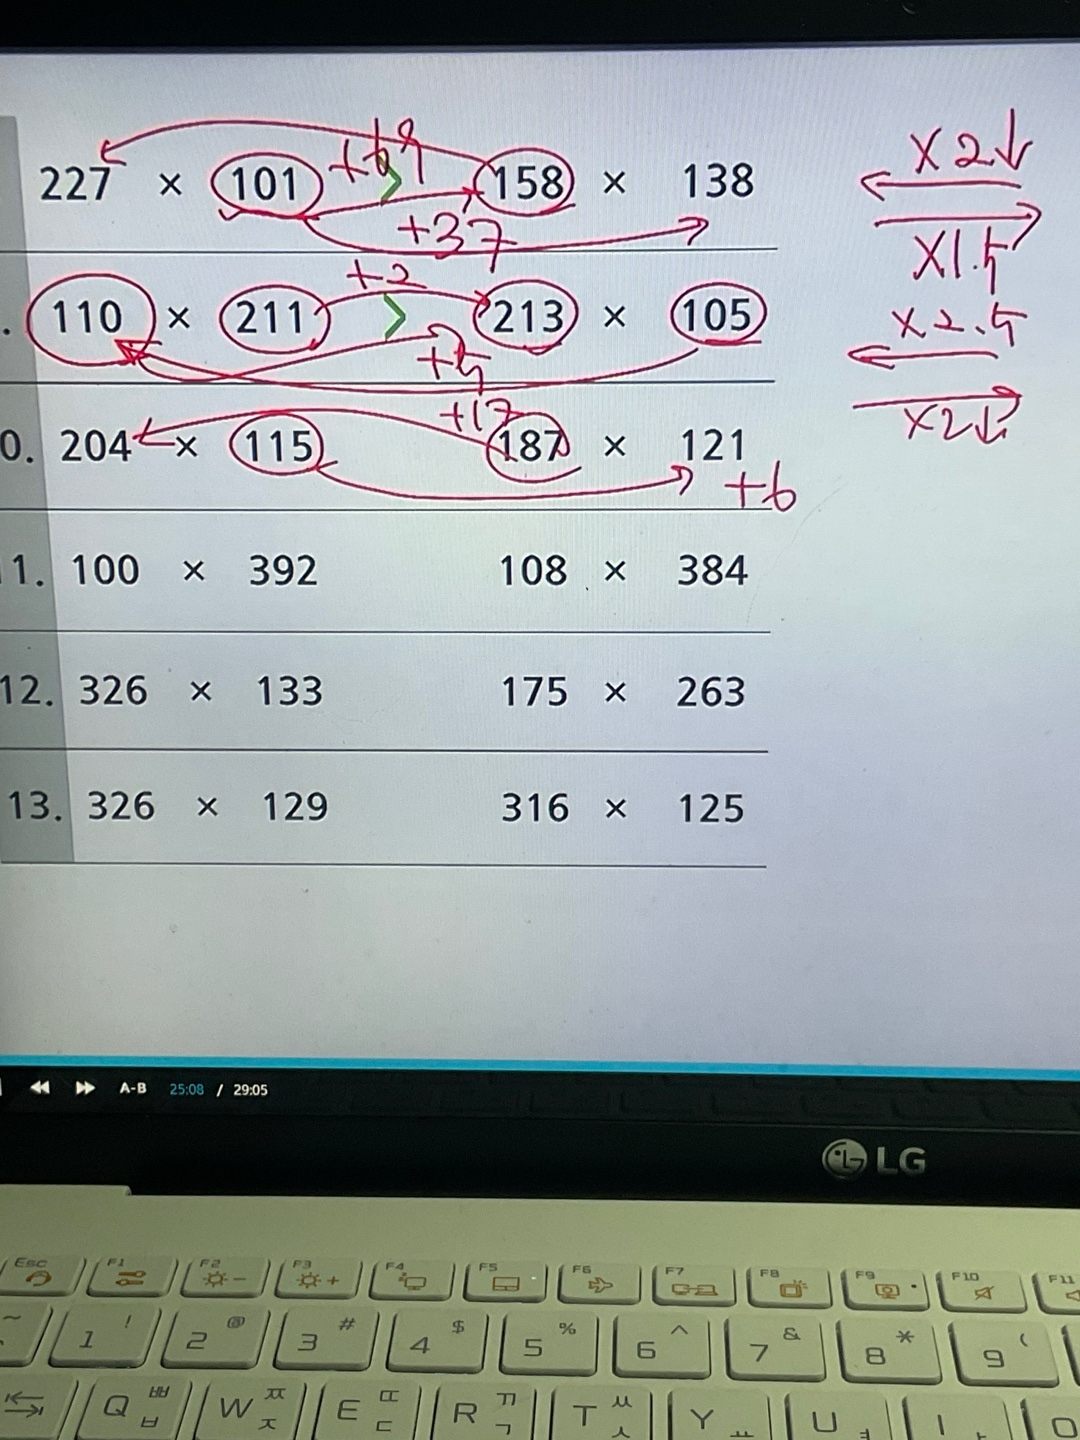 227 × 101 > 158 × 138
+69
+37
×2↓
×1.5
. 110 × 211 > 213 × 105
+2
+5
×2.5
×2↓
0. 204 × 115 187 × 121
+17
+6
1. 100 × 392 108 × 384
12. 326 × 133 175 × 263
13. 326 × 129 316 × 125
A-B 25:08 / 29:05
LG
Esc F1 F2 F3 F4 F5 F6 F7 F8 F9 F10 F11
~ ! @ # $ % ^ & * (
1 2 3 4 5 6 7 8 9
Q ㅃ ㅂ W ㅉ ㅈ E ㄸ ㄷ R ㄲ ㄱ T ㅆ ㅅ Y ㅛ U ㅕ I O